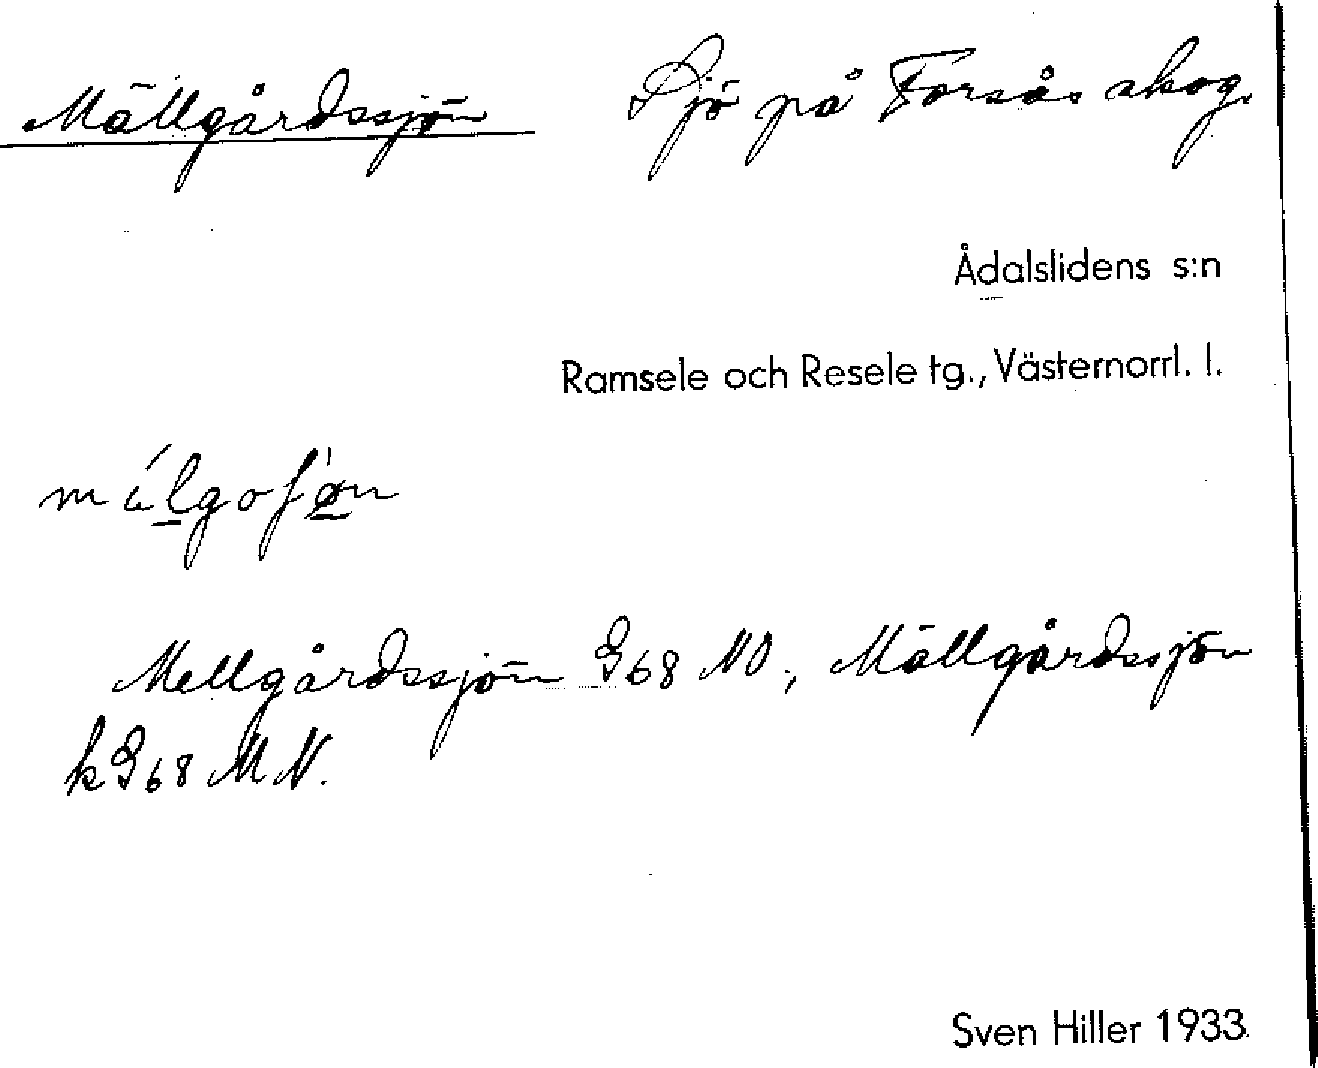 Mällgårdssjön Sjö på Forsås skog.
Ådalslidens s:n
Ramsele och Resele tg., Västernorrl. l.
Mellgårdssjön G68 NO., Mällgårdssjön
k G68 MN.
Sven Hiller 1933.